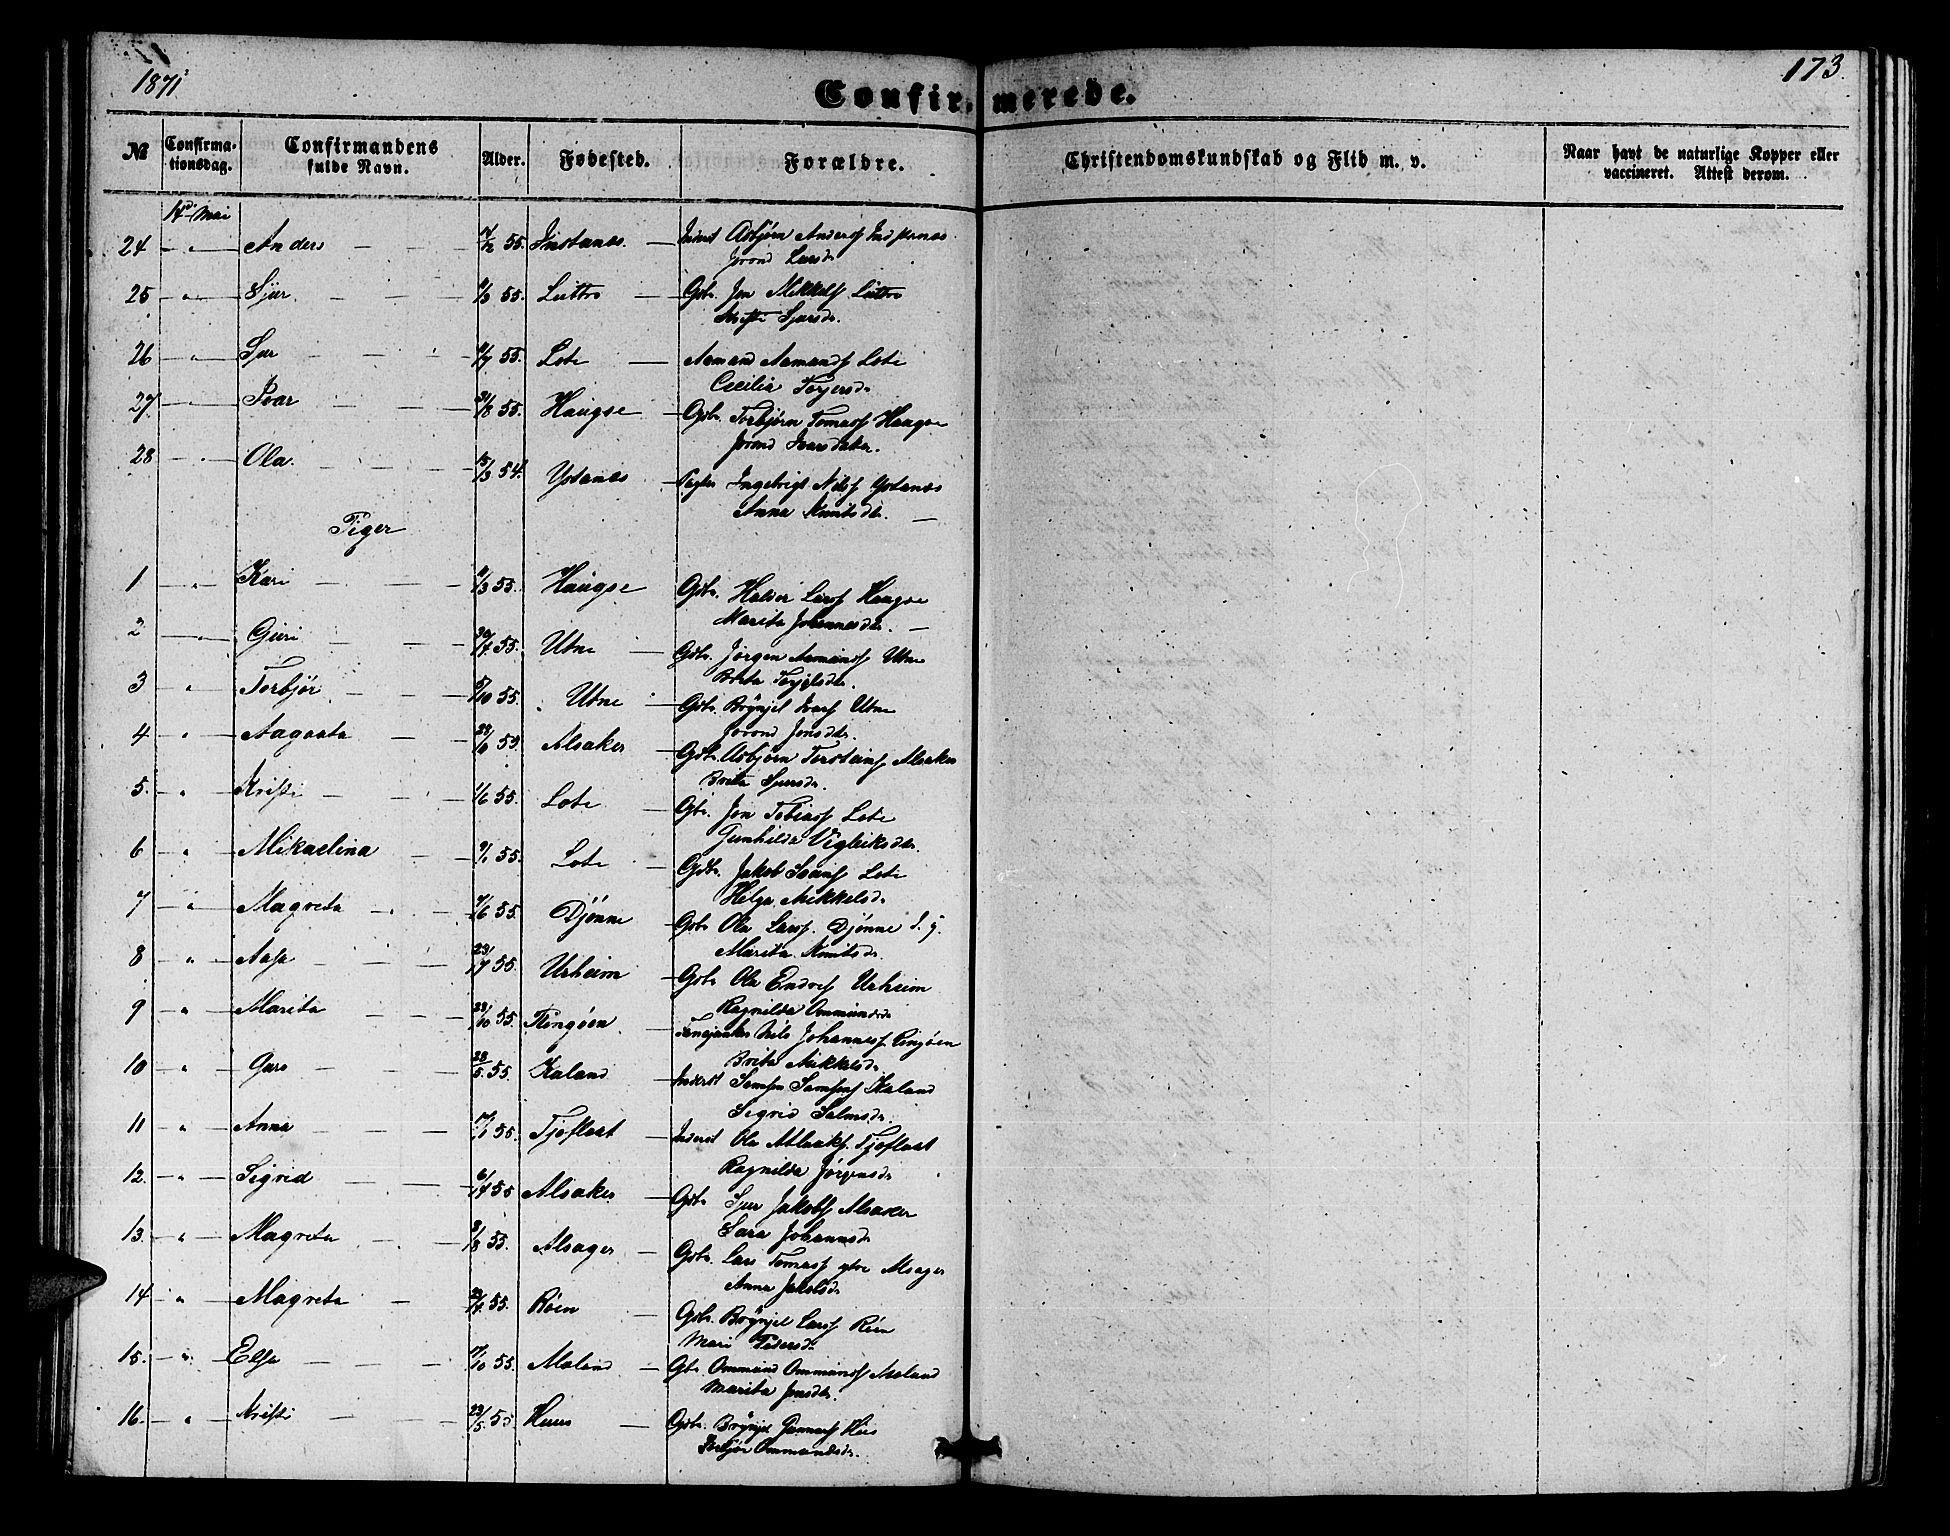 1871
173
Confirmerede.
№ Confirmationsdag. Confirmandens fulde Navn. Alder. Fødested. Forældre. Christendomskundskab og Flid m. v. Naar havt de naturlige Kopper eller vaccineret. Attest derom.
14d Mai
24 " Anders 55. Instanæs. Inderst Asbjørn Anders
Jorond Larsd.
25 " Sjur 55. Luttro Gbr. Jon Mikkels Luttro
Kristi Sjursdr.
26 " Sjur 55. Lote Aamund Aamunds Lote
Cecilia
27 " Ivar 31/8 55. Haugse Gbr. Torbjørn Tomass Haugse
Jorond Ivarsdatter.
28 " Ola 15/3 54. Ystanæs Ingebrigt Nilss Ystanæs
Anna Knutsdr.
Piger
1 " Kari 11/3 55. Haugse Gbr. Halvor Larss Haugse
Marita Johannesdr.
2 " Guri 30/7 55. Utne Gbr. Jørgen Aamunds Utne
Brita
3 " Torbjør 5/10 55. Utne Gbr. Brynjel Ivars Utne
Jorond Jonsdr.
4 " Aagaata 55. Alsaker Gbr. Asbjørn Torsteins Alsaker
Brita Sjursdr.
5. " Kristi 1/6 55. Lote Gbr. Jon Tobiass Lote
Gunhilda Vigleiksdr.
6 " Mikaelina 9/1 55. Lote Gbr. Jakob Lote
Helga Mikkelsd.
7 " Magreta 7/6 55. Djønne Gbr. Ola Larss. Djønne
Marita Knutsdr.
8 " Aasa 55. Urheim Gbr. Ola Endres Urheim
Ragnilda Ommundsdr
9 " Marita 23/10 55. Nils Johanness
Brita Mikkelsdr
10 " Guro 28/5 55. Kaland Inderst Samson Samsons Kaland
Sigrid
11 " Anna 17/1 55. Tjoflaat Inderst Ola Tjoflaat
Ragnilda Jørgensdr
12. " Sigrid 55 Alsaker Gbr. Sjur Jakobs Alsaker
Sara Johannesdr
13. " Magreta 3/8 55. Alsager Gbr. Lars Tomass ytre Alsager
Anna Jakobsdr
14 " Magreta 55. Røen Gbr. Brynjel Larss Røen
Mari Pedersdr.
15. " Elsa 17/10 55. Maland Gbr. Ommund Ommunds Maland
Marita Jonsdr.
16. " Kristi 23/5 55 Huus Gbr. Brynjel Gunnars Hus
Torbjør Ommundsdr.